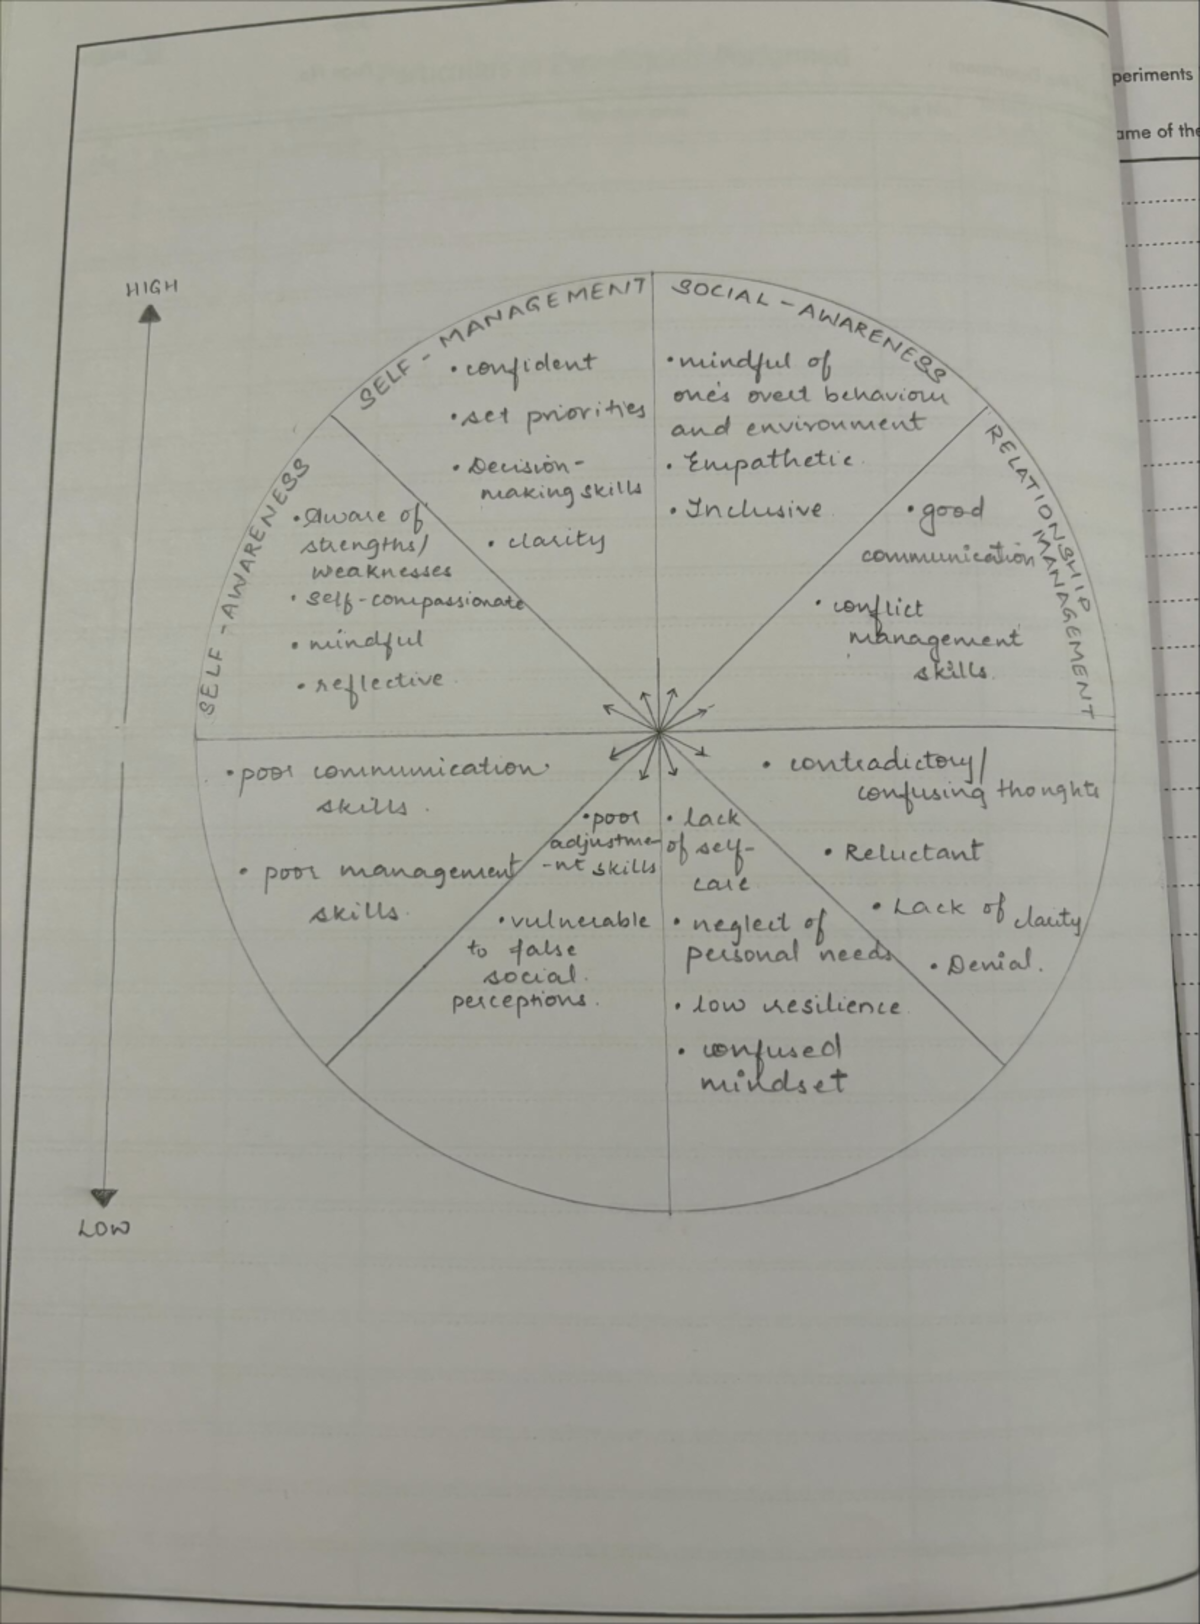 periments
ame of the
HIGH
SELF-MANAGEMENT
• confident
• set priorities
• Decision-
making skills
• clarity
SOCIAL-AWARENESS
• mindful of
one's overt behaviour
and environment
• Empathetic.
• Inclusive
SELF-AWARENESS
• Aware of
strengths/
weaknesses
• self-compassionate
• mindful
• reflective.
RELATIONSHIP
MANAGEMENT
• good
communication
• conflict
management
skills.
• poor communication
skills.
• poor management
skills.
• poor
adjustme-
-nt skills
• vulnerable
to false
social.
perceptions.
• lack
of self-
care
• neglect of
personal needs
• low resilience
• confused
mindset
• contradictory/
confusing thoughts
• Reluctant
• Lack of clarity
• Denial.
LOW